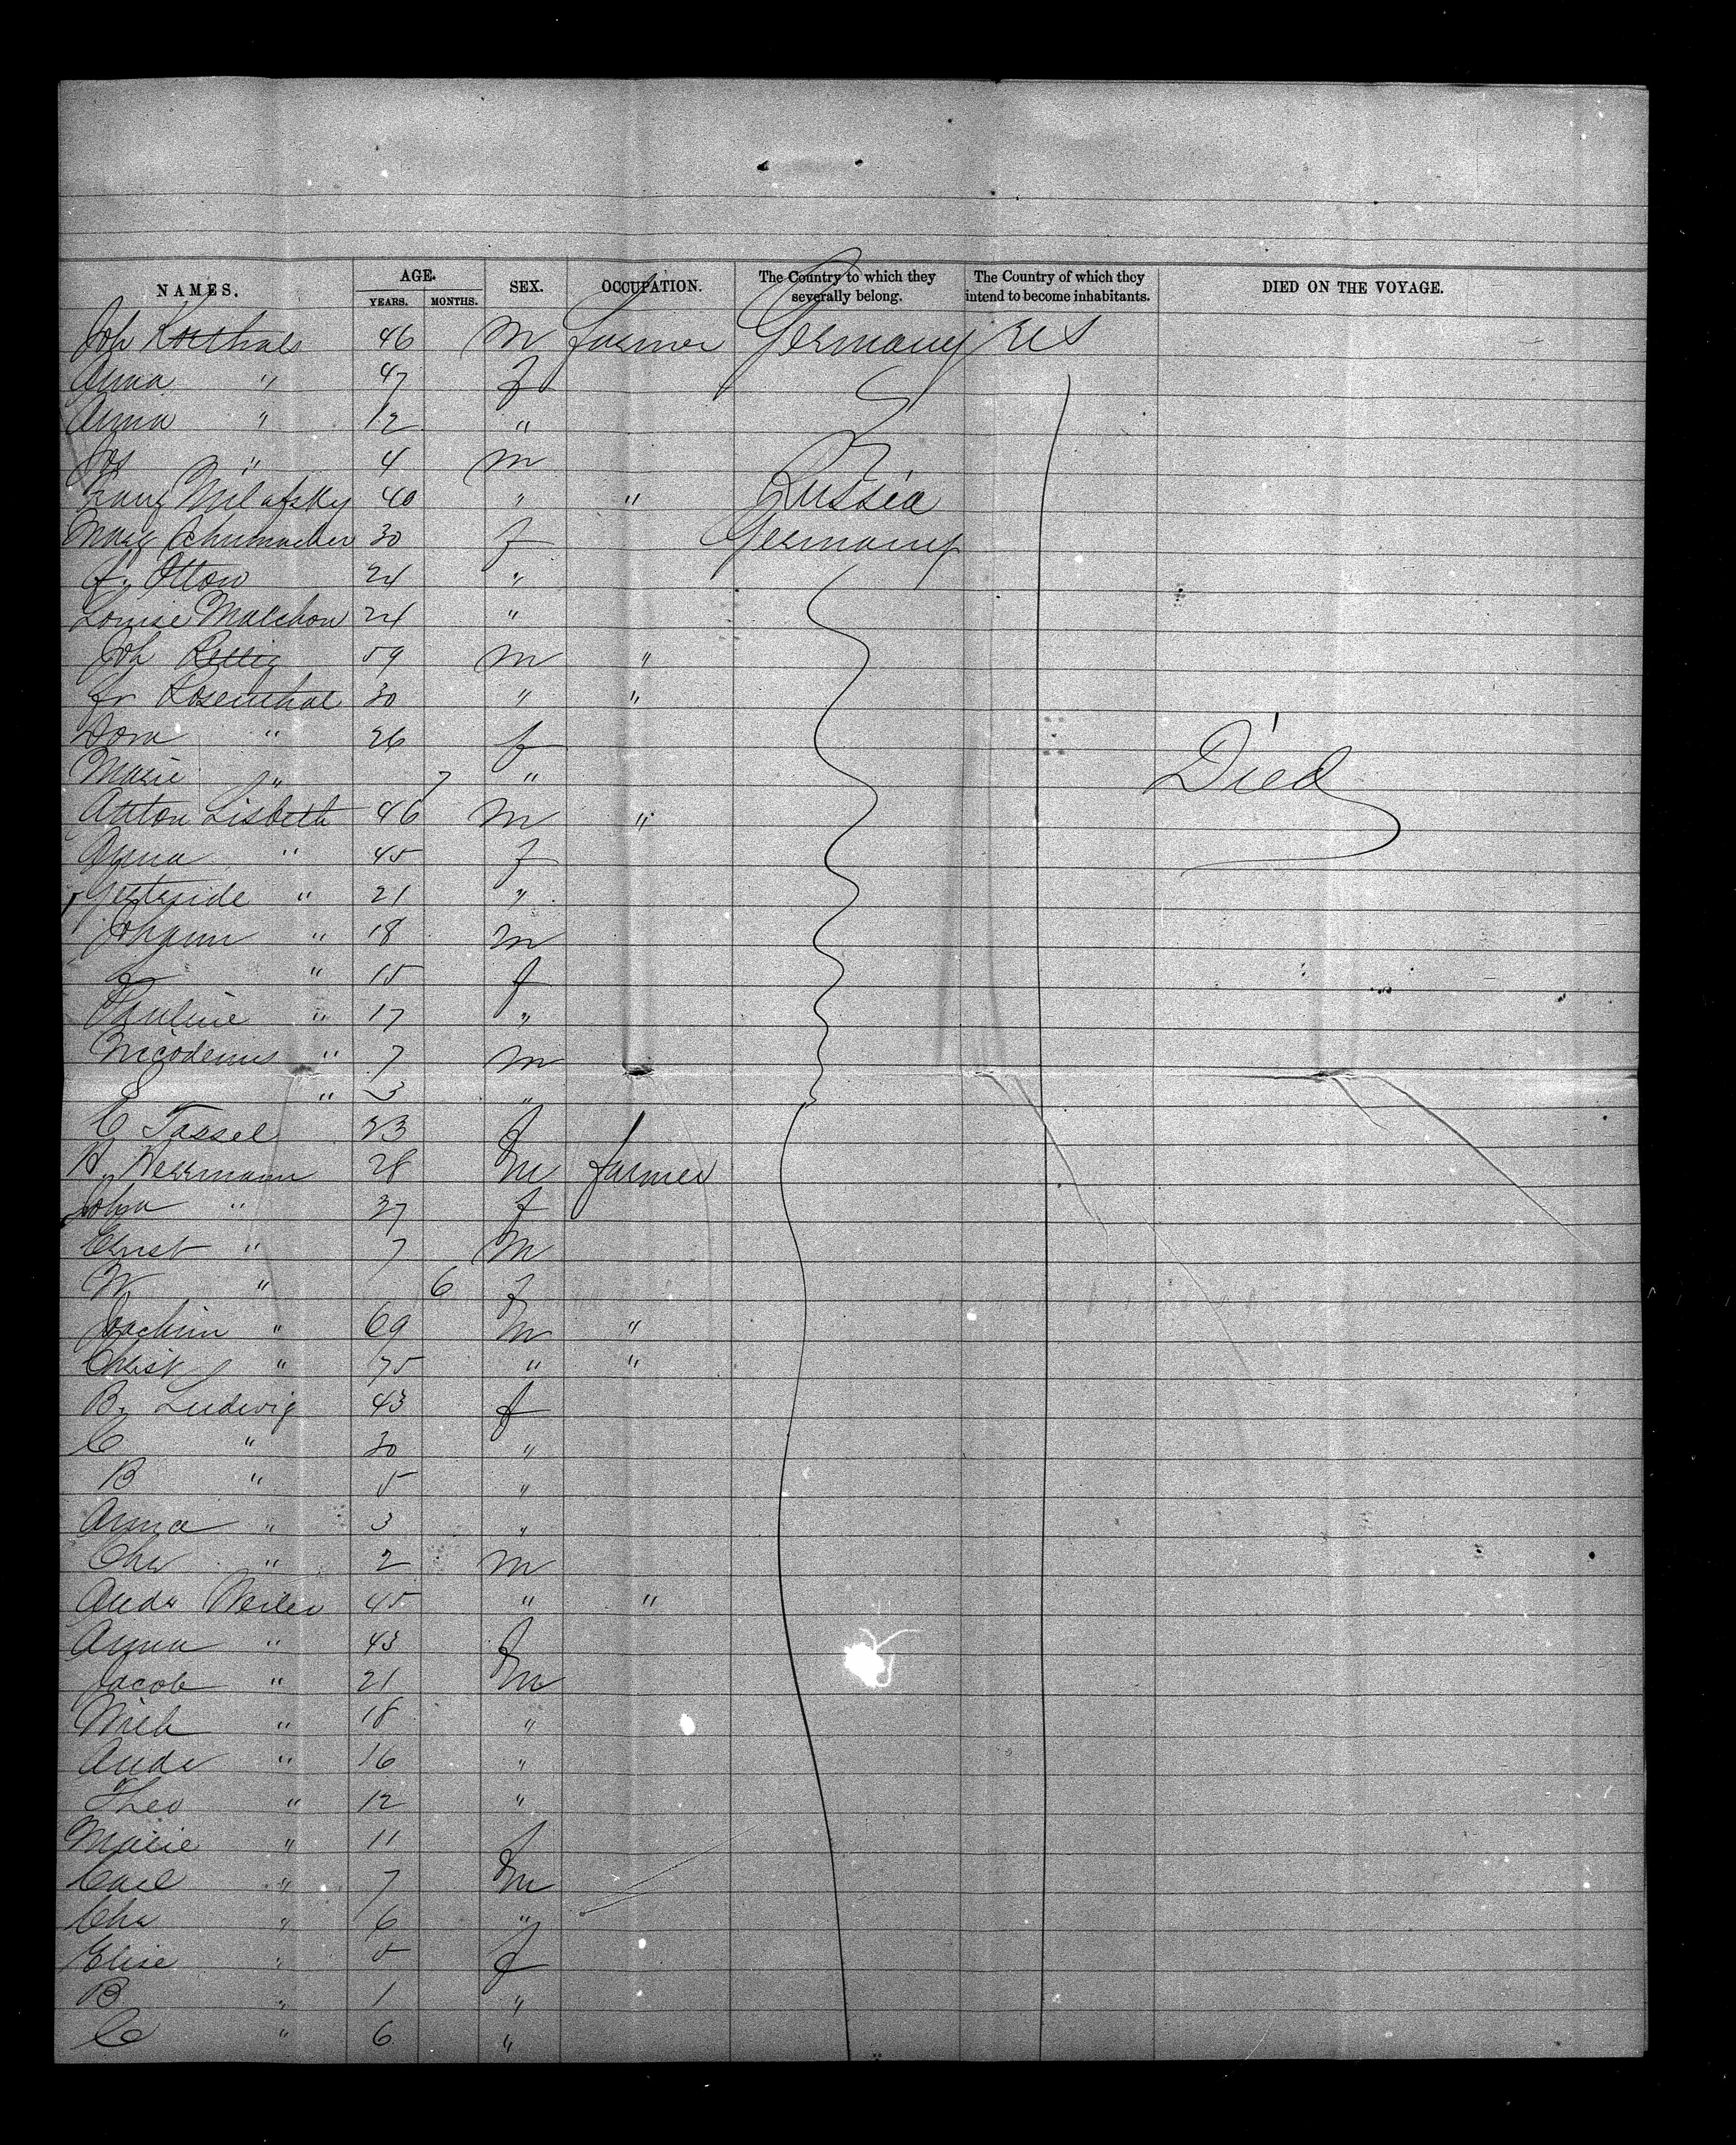 NAMES. AGE. YEARS. MONTHS. SEX. OCCUPATION. The Country to which they severally belong. The Country of which they intend to become inhabitants. DIED ON THE VOYAGE.
Joh Korthals 46 m farmer Germany US
Anna " 47 f
Anna " 12 "
Jos " 4 m
Franz 40 " " Russia
Marie Schumacher 30 f Germany
F. Ottow 24 "
Louise Malchow 24 "
Joh Rettig 59 m "
Fr Rosenthal 30 " "
Dora " 26 f
Marie " 7 " Died
Anton Lisbeth 46 m "
Anna " 45 f
Gertrude " 21 "
Johann " 18 m
" 15 f
Pauline " 17 "
Nicodemus " 7 m
" 3 "
C Tassel 23 f
H. Herrmann 28 m farmer
" 37 f
Ernst " 7 m
W " 6 f
Joachim " 69 m "
Christ " 75 " "
B. Ludwig 43 f
C " 30 "
B " 5 "
Anna " 3 "
Chr " 2 m
Andr Weiler 45 " "
Anna " 43 f
Jacob " 21 m
Mich " 18 "
Andr " 16 "
Theo " 12 "
Marie " 11 f
Carl " 7 m
Chr " 6 "
Elise " 5 f
B " 1 "
C " 6 "